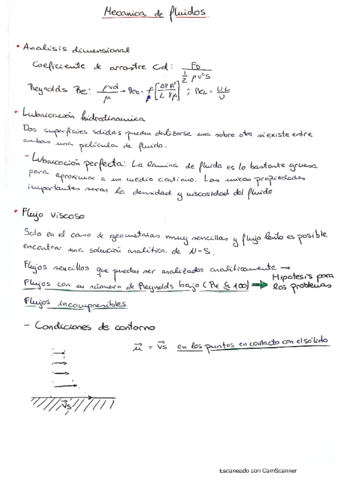 Mecanica de fluidos
• Analisis dimensional
Coeficiente de arrastre Cd: F_D / ½ ρ v² S
Reynolds Re: ρvd / μ
• Lubricación hidrodinamica
Dos superficies solidas pueden deslizarse una sobre otra si existe entre
ambas una pelicula de fluido.
- Lubricación perfecta: La lamina de fluido es lo bastante gruesa
para aproximar a un medio continuo. Las unicas propiedades
importantes seran la densidad y viscosidad del fluido
• Flujo viscoso
Solo en el caso de geometrias muy sencillas y flujo lento es posible
encontrar una solución analitica de N-S.
Flujos sencillos que puedan ser analizados analiticamente →
Flujos con su número de Reynolds bajo (Re ≲ 100) → Hipotesis para
los problemas
Flujos incompresibles
- Condiciones de contorno
u⃗ = v⃗s en los puntos en contacto con el sólido
v⃗s
Escaneado con CamScanner